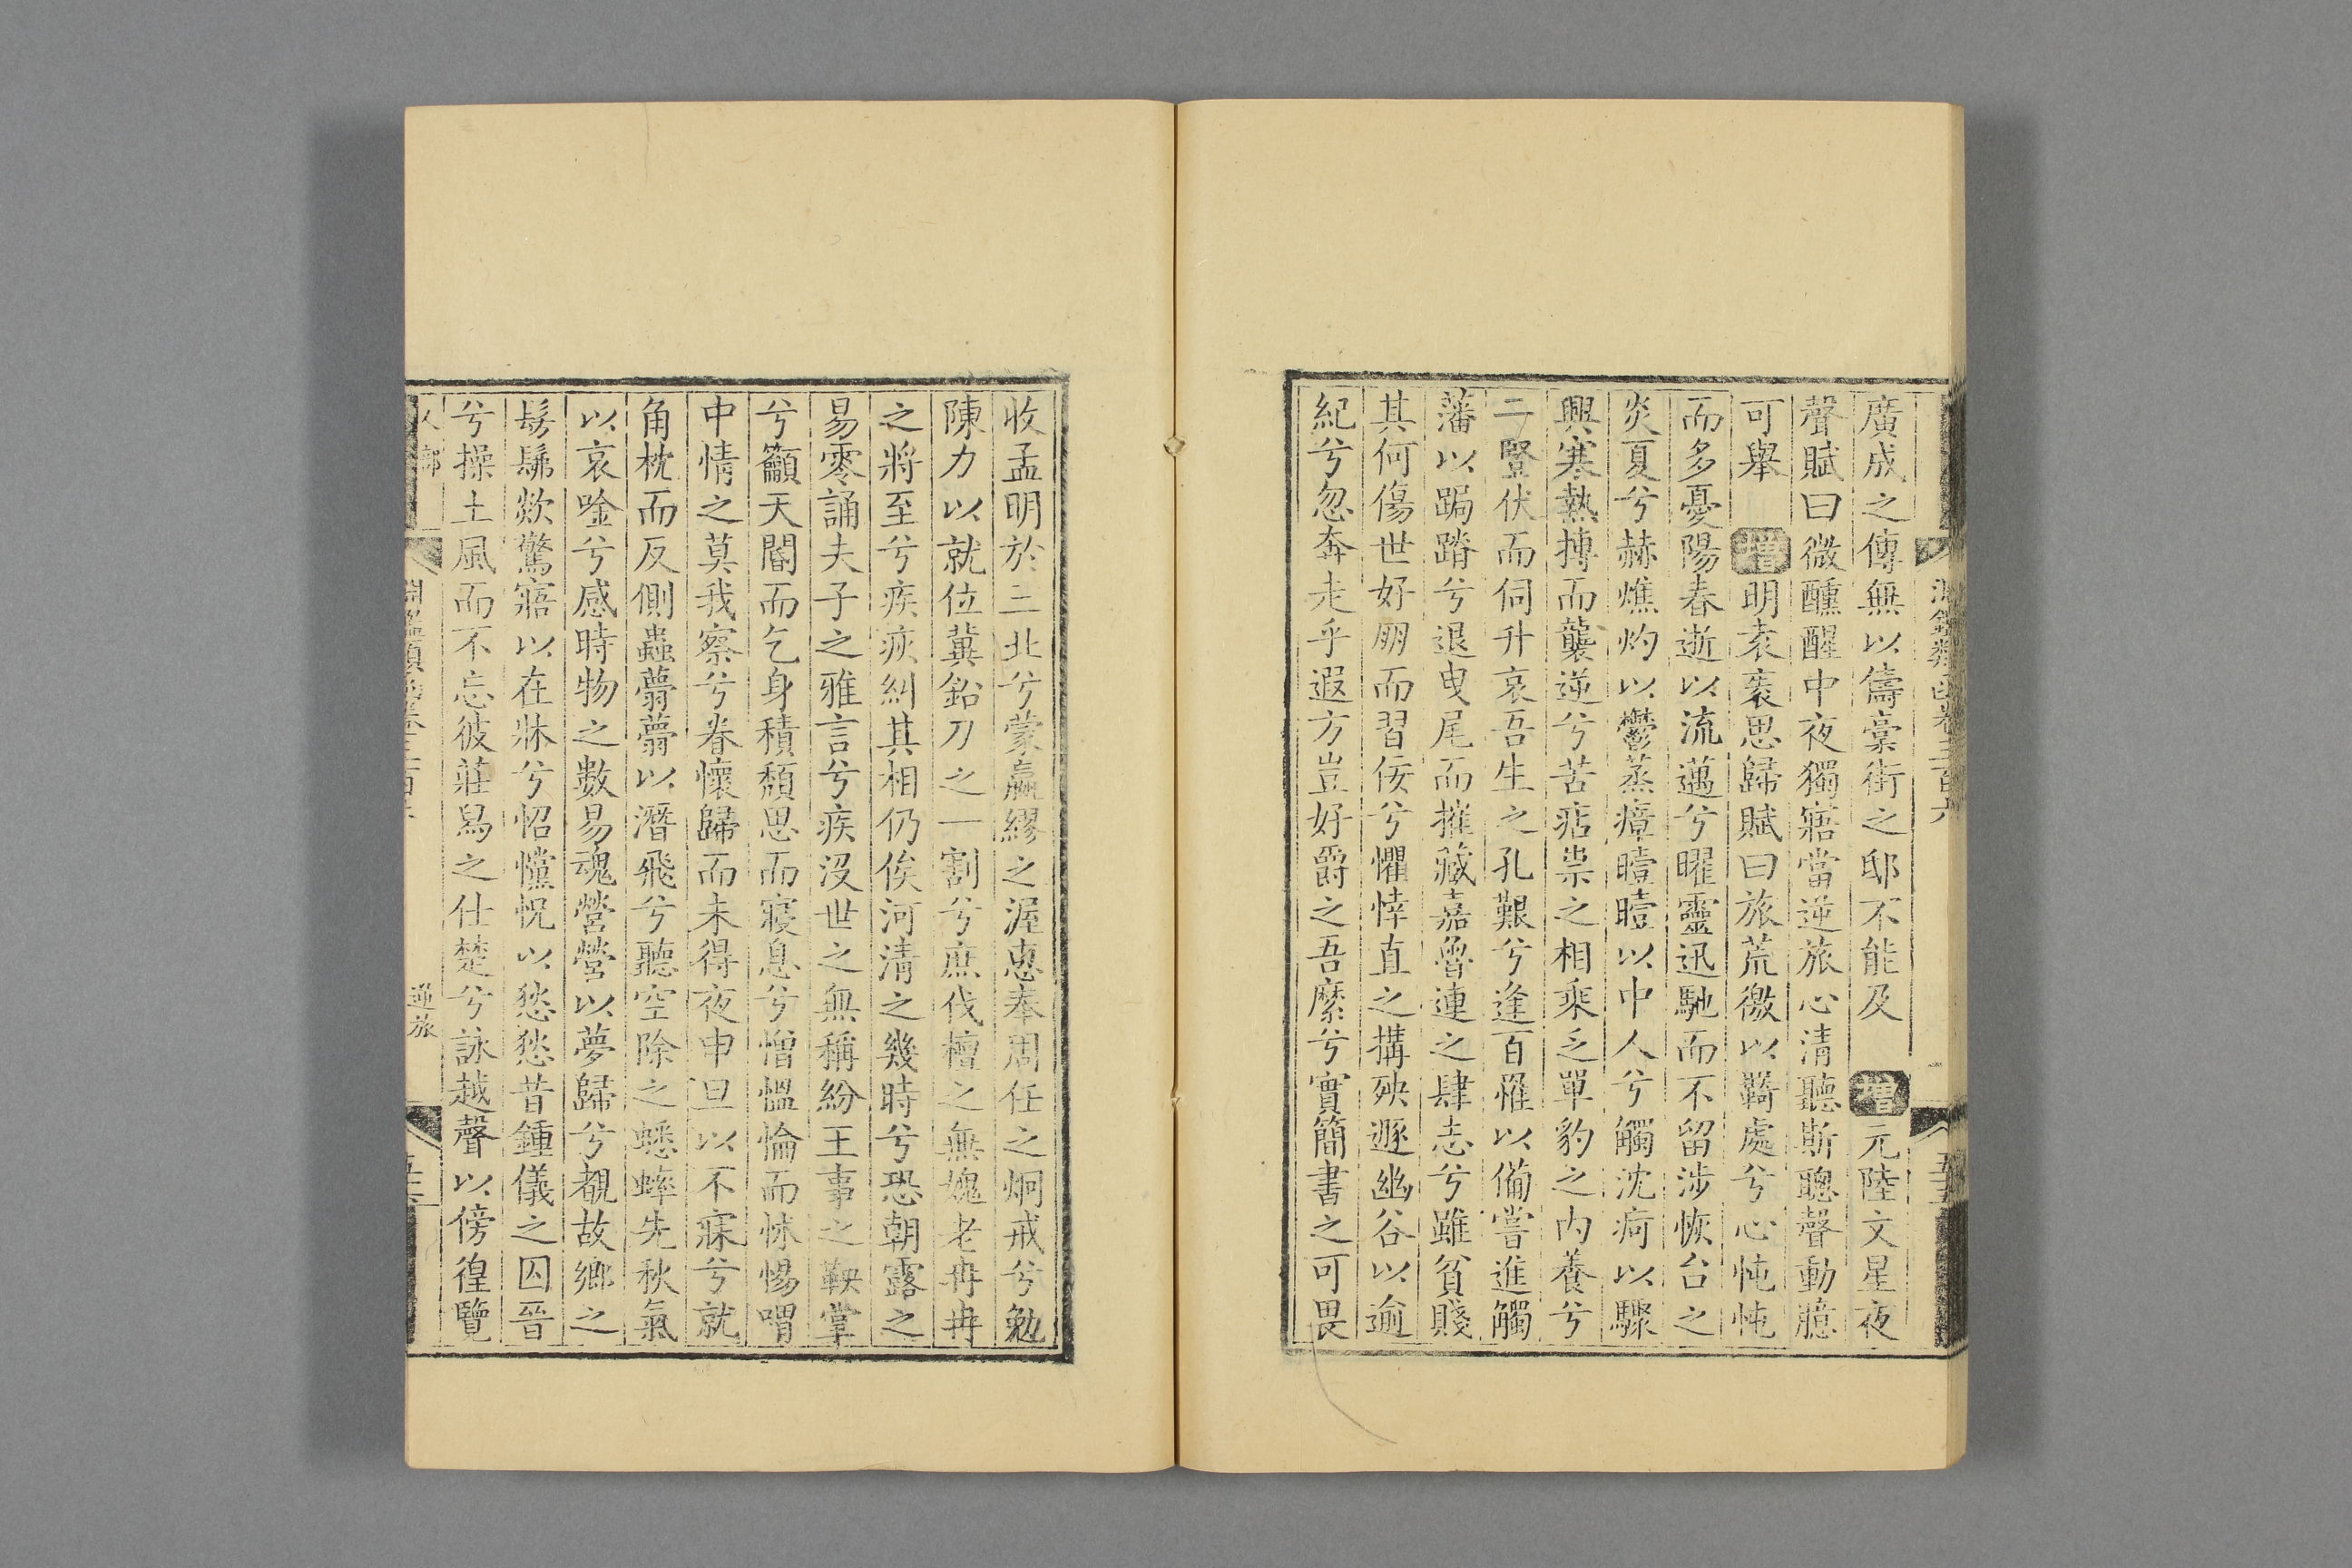 淵鑑類函卷三百六
廣成之傳無以儔稾街之邸不能及 增元陸文星夜
聲賦曰微醺醒中夜獨寤當逆旅心清聽斯聰聲動臆
可舉 增明袁袠思歸賦曰旅荒徼以羇處兮心忳忳
而多憂陽春逝以流邁兮曜靈迅馳而不留涉恢台之
炎夏兮赫燋灼以鬱蒸瘴曀曀以中人兮觸沈痾以驟
興寒熱搏而襲逆兮苦痁祟之相乘乏單豹之內養兮
二豎伏而伺升哀吾生之孔艱兮逢百罹以備嘗進觸
藩以跼蹐兮退曳尾而摧藏嘉魯連之肆志兮雖貧賤
其何傷世好朋而習佞兮懼悻直之搆殃遯幽谷以逾
紀兮忽奔走乎遐方豈好爵之吾縻兮實簡書之可畏
收孟明於三北兮蒙嬴繆之渥惠奉周任之炯戒兮勉
陳力以就位冀鉛刀之一割兮庶伐檀之無媿老冉冉
之將至兮疾疢糾其相仍俟河清之幾時兮恐朝露之
易零誦夫子之雅言兮疾沒世之無稱紛王事之鞅掌
兮籲天閽而乞身積頹思而寢息兮憎慍惀而怵惕喟
中情之莫我察兮眷懷歸而未得夜申旦以不寐兮就
角枕而反側蟲薨薨以潛飛兮聽空除之蟋蟀先秋氣
以哀唫兮感時物之數易魂營營以夢歸兮覩故鄉之
髣髴欻驚寤以在牀兮怊戃怳以愁愁昔鍾儀之囚晉
兮操土風而不忘彼莊舄之仕楚兮詠越聲以傍徨覽
逆旅